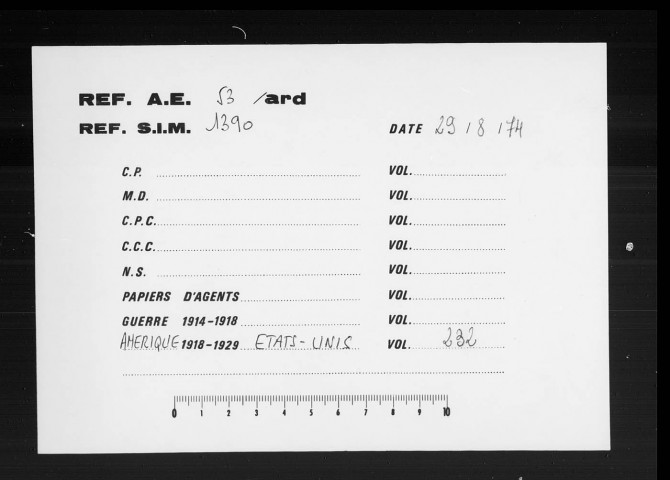 REF. A.E. 53 /ard
REF. S.I.M. 1390 DATE 29 / 8 / 74
C.P. VOL.
M.D. VOL.
C.P.C. VOL.
C.C.C. VOL.
N.S. VOL.
PAPIERS D'AGENTS VOL.
GUERRE 1914-1918 VOL.
AMERIQUE 1918-1929 ETATS-UNIS VOL. 232
0 1 2 3 4 5 6 7 8 9 10